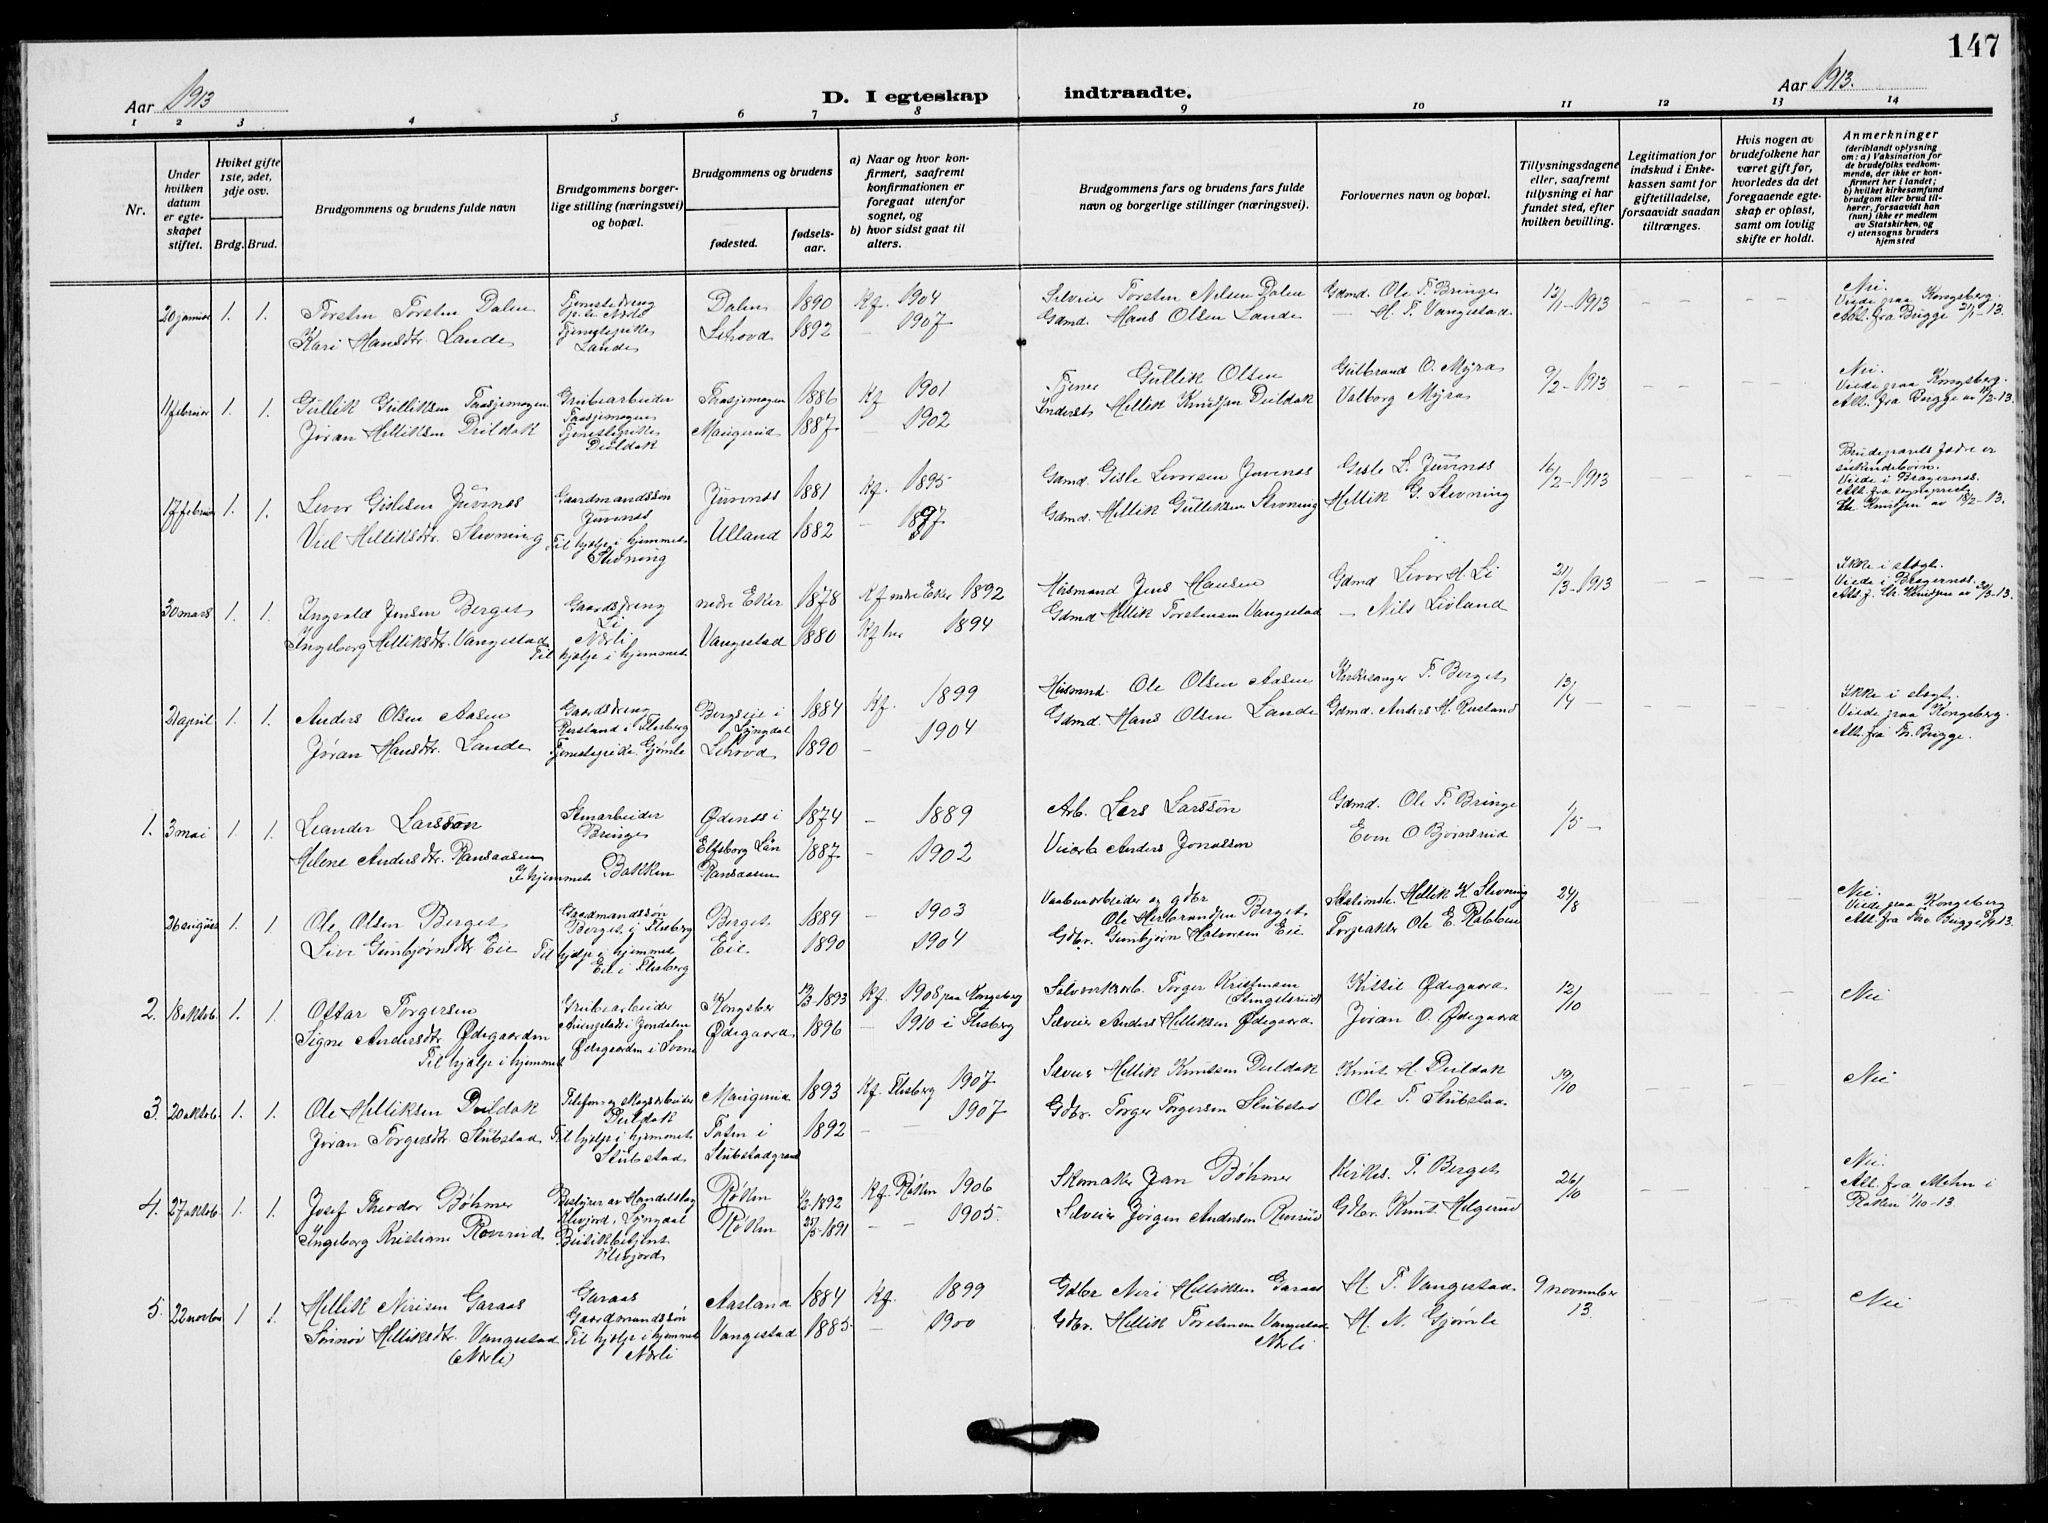 147
Aar 1913
D. I egteskap indtraadte.
Aar 1913.
1 2 3 4 5 6 7 8 9 10 11 12 13 14
Nr.
Under hvilken datum er egteskapet stiftet.
Hvilket gifte 1ste, 2det, 3dje osv.
Brdg. Brud.
Brudgommens og brudens fulde navn
Brudgommens borgerlige stilling (næringsvei) og bopæl.
Brudgommens og brudens
fødested.
fødselsaar.
a) Naar og hvor konfirmert, saafremt konfirmationen er foregaat utenfor sognet, og
b) hvor sidst gaat til alters.
Brudgommens fars og brudens fars fulde navn og borgerlige stillinger (næringsvei).
Forlovernes navn og bopæl.
Tillysningsdagene eller, saafremt tillysning ei har fundet sted, efter hvilken bevilling.
Legitimation for indskud i Enkekassen samt for giftetilladelse, forsaavidt saadan tiltrænges.
Hvis nogen av brudefolkene har været gift før, hvorledes da det foregaaende egteskap er opløst, samt om lovlig skifte er holdt.
Anmerkninger (deriblandt oplysning om: a) Vaksination for de brudefolks vedkommende, der ikke er konfirmert her i landet; b) hvilket kirkesamfund brudgom eller brud tilhører, forsaavidt han (hun) ikke er medlem av Statskirken, og c) utensogns bruders hjemsted
20 januar 1. 1. Torsten Torsten Dalen Tjenestedreng Dalen 1890 Kf. 1904 Selveier Torsten Nilsen Dalen Gdmd. Ole T. Bringe 12/1-1913 Nei.
Kari Hansdtr. Lande Tjenestepike Lande 1892 — 1907 Gdmd. Hans Olsen Lande — H. T. Vangestad. Viede paa Kongsberg. Att. fra Brügge 21/1-13.
11 februar 1. 1. Gullik Gulliksen Grubearbeider 1886 Kf 1901 Tjener Gullik Olsen Gulbrand O. Myra 9/2-1913 Nei.
Jøran Helliksen Duldak Tjenestepike Duldak Maugerud 1887 — 1902 Inderst Hellik Knudsen Duldak Valborg Myra Viede paa Kongsberg. Att. fra Brügge av 11/2-13.
17 februar 1. 1. Levor Gislesen Juvenes Gaardmandssøn Juvenes Juvenes 1881 Kf. 1895 Gdmd. Gisle Levorsen Juvenes Gisle L. Juvenes 16/2-1913 Brudeparets fædre er søskendebørn.
Helliksdtr. Stevning Til hjælp i hjemmet Stevning Ulland 1882 — 1897 Gdmd. Hellik Gulliksen Stevning Hellik G. Stevning Viede i Bragernes. Att. fra sogneprest Knudsen av 18/2-13.
30 mars 1. 1. Ingvald Jensen Berget Gaardsdreng Li nedre Eker 1878 Kf nedre Eker 1892 Husmand Jens Hansen Gdmd Levor H. Li 21/3-1913 Ikke i slegt.
Ingeborg Helliksdtr. Vangestad Nærli Til hjælp i hjemmet Vangestad 1880 Kf her 1894 Gdmd Hellik Torstensen Vangestad — Nils Livland Viede i Bragernes. Att f. Knudsen av 30/3-13.
21 april 1. 1. Anders Olsen Aasen Gaardsdreng Rustand i Flesberg Bergseie i Lyngdal 1884 Kf. 1899 Husmnd. Ole Olsen Aasen Kirkesanger T. Berget 13/4 — Ikke i slegt.
Jøran Hansdtr. Lande Tjenestepike Gjømle 1890 — 1904 Gdmd. Hans Olsen Lande Gdmd. Anders H. Rustand Viede paa Kongsberg. Att. fra Brügge.
1. 3 mai 1. 1. Leander Larssøn Stenarbeider Bringe Ødenes i Elfsborg Län 1874 — 1889 Arb. Lars Larssøn Gdmd. Ole T. Bringe 1/5 —
Helene Andersdtr. Ransaasen I hjemmet Bakken Ransaasen 1887 — 1902 Anders Jonassen Even O Bjørnsrud
26 august 1. 1. Ole Olsen Berget Gaardmandssøn Berget i Flesberg Berget 1889 — 1903 Vaabenarbeider og gdbr Ole Herbrandsen Berget Hellik K. Stevning 24/8 Nei.
Live Gunbjørnsdtr Eie Til hjælp i hjemmet Eie i Flesberg Eie 1890 1904 Gdbr. Gunbjørn Halvorsen Eie Forpakter Ole E. Rabben Viede paa Kongsberg Att. fra Brügge
2. 18 oktob. 1. 1. Ottar Torgersen Grubearbeider i Jondalen Kongsber 1893 Kf. 1908 paa Kongsberg Sølvverksarb. Torger Kristensen Kittil Ødegaard 12/10 Nei
Signe Andersdtr Ødegaarden Til hjælp i hjemmet Ødegaarden i Svene Ødegaard 1896 — 1910 i Flesberg Selveier Anders Helliksen Ødegaard Jøran O. Ødegaard
3. 20 oktob 1. 1. Ole Helliksen Duldak Telefon- og skogsarbeider Duldak Maugerud 1893 Kf. Flesberg 1907 Selveier Hellik Knutsen Duldak Knut H Duldak 19/10 Nei
Jøran Torgersdtr. Stubstad Til hjælp i hjemmet Stubstad Toten i Stubstadgrand 1892 — — 1907 Gdbr. Torger Torgersen Stubstad Ole T. Stubstad
4. 27 oktob. 1. 1. Josef Theodor Bøhmer Bestyrer av Handelslag Klevjord, Lyngdal Røken 1892 Kf. Røken 1906 Skomaker Jan Bøhmer Kirkes. T. Berget 26/10 Nei.
Ingeborg Kristiane Butikbetjent Klevjord Røken 1891 — — 1905. Selveier Jørgen Andersen Gdbr. Knut Helgerud Att. fra Mohn i Røken 1/10-13.
5. 22 novber 1 1. Hellik Nirisen Garaas Garaas Gaardmandssøn Aasland 1884 Kf. 1899 Gdbr Niri Helliksen Garaas H. T. Vangestad 9 november 13. Nei
Helliksdtr. Vangestad (Nærli) Til hjælp i hjemmet Nærli Vangestad 1885 — 1900 Gdbr. Hellik Torstensen Vangestad Nærli H. N. Gjømle